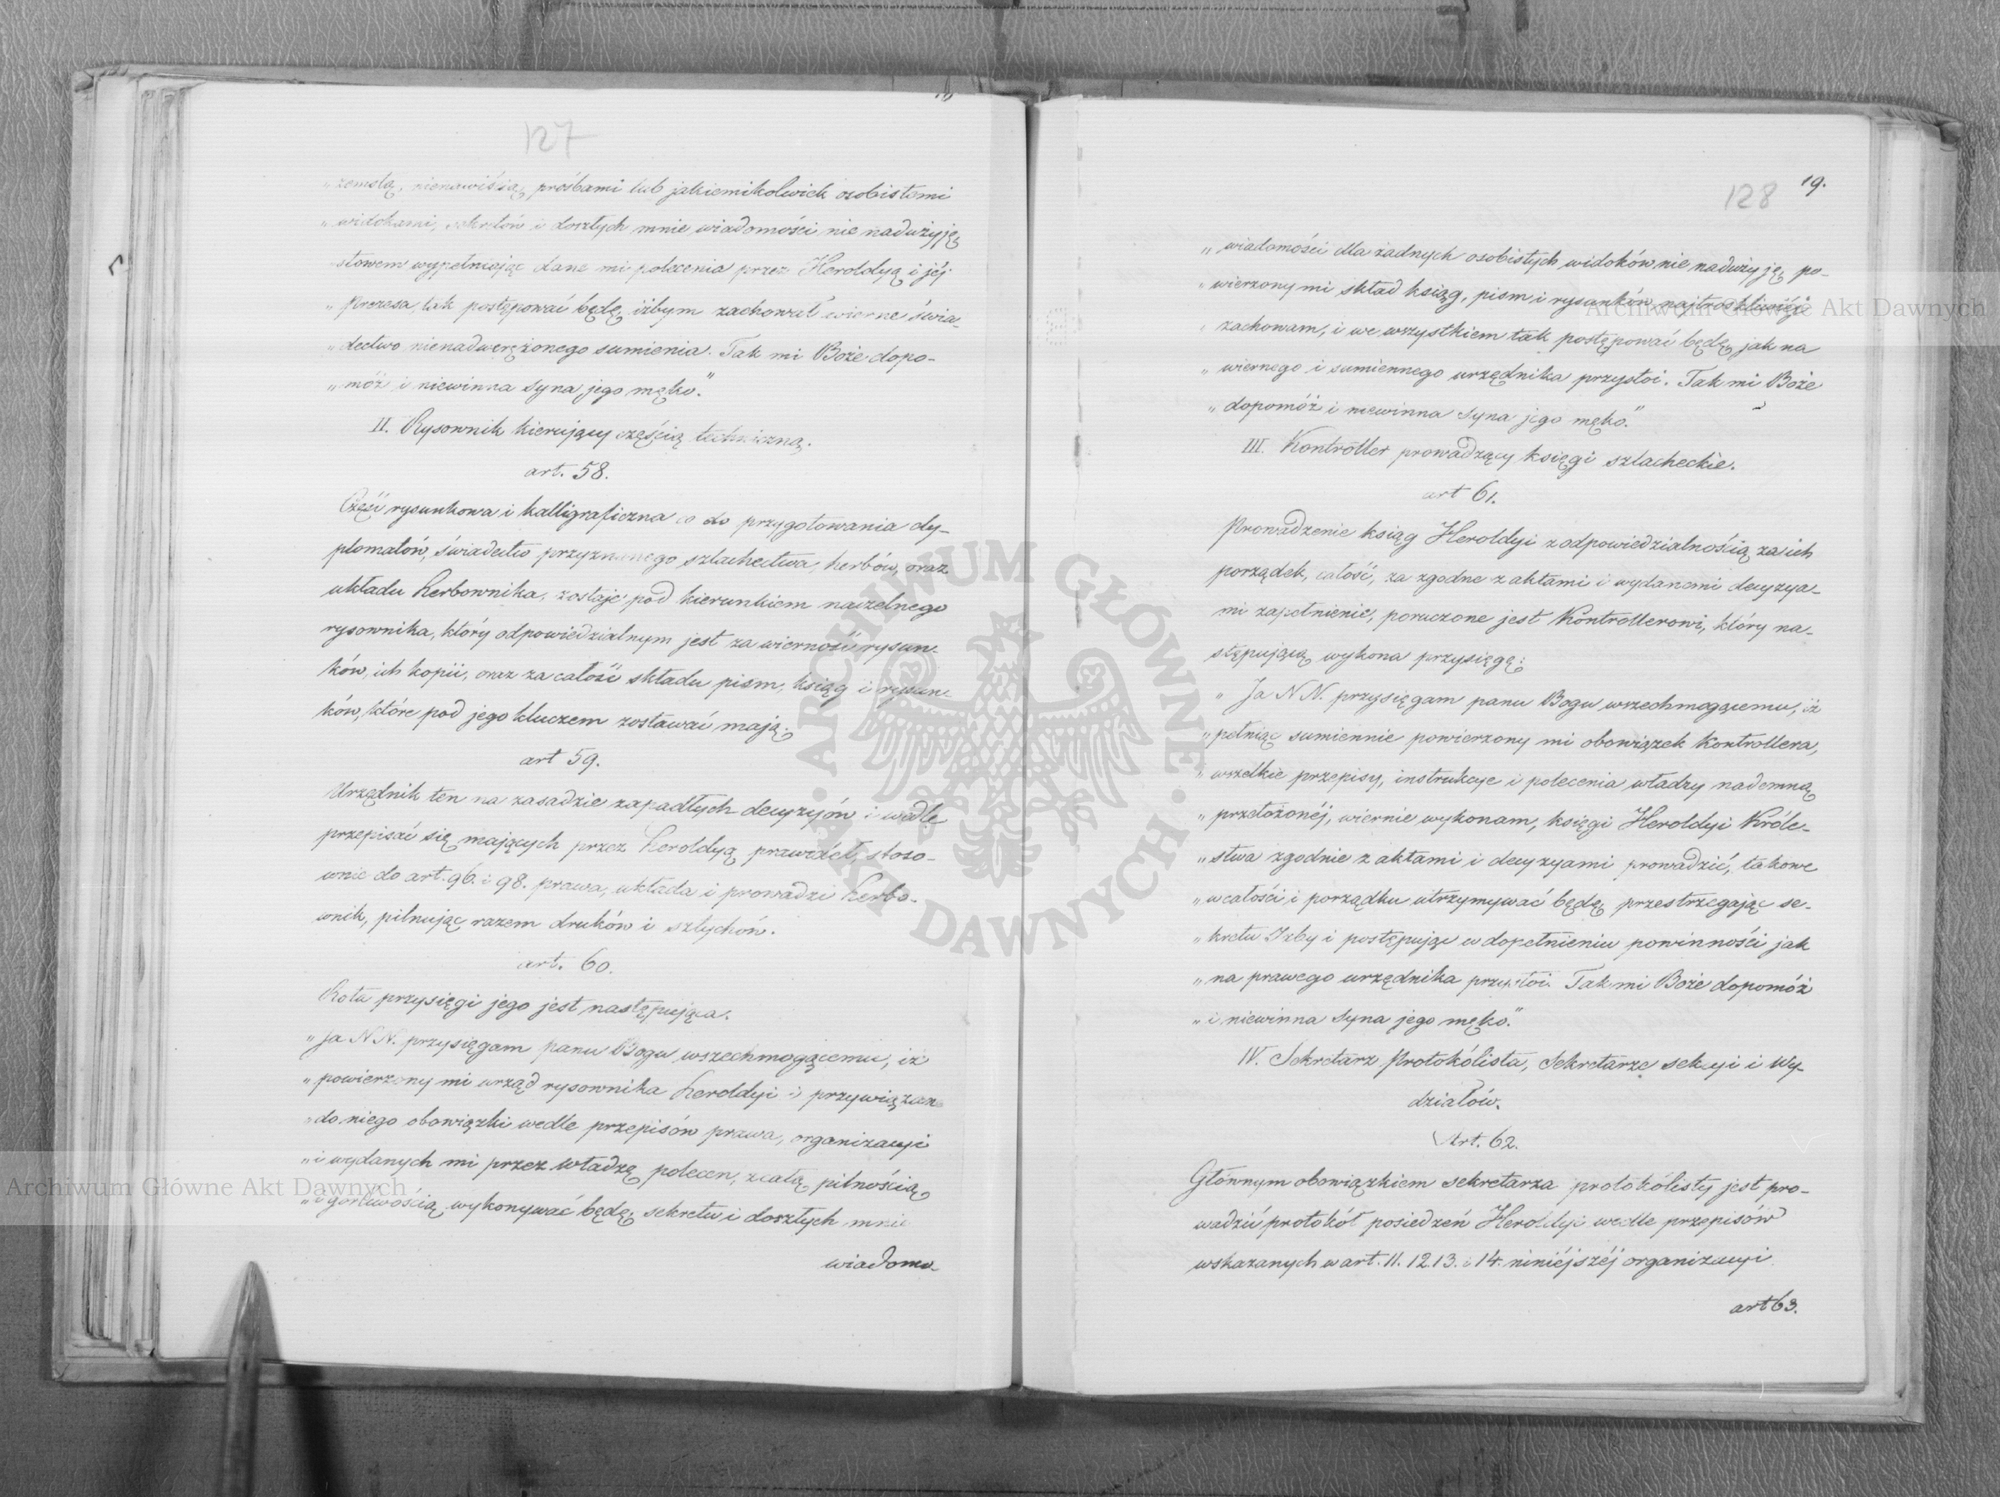 127
„zemstą, nienawiścią, prośbami lub jakiemikolwiek osobistemi
„widokami, sekretów i doszłych mnie wiadomości nie nadużyję,
słowem wypełniając dane mi polecenia przez Heroldyą i jéj
„Prezesa, tak postępować będę, iżbym zachował wierne świa-
„dectwo nienadwerężonego sumienia. Tak mi Boże dopo-
„móż i niewinna syna jego męko."
II. Rysownik kierujący częścią techniczną.
art. 58.
Część rysunkowa i kalligraficzna co do przygotowania dy-
plomatów, świadectw przyznanego szlachectwa, herbów, oraz
układu herbownika, zostaje pod kierunkiem naczelnego
rysownika, który odpowiedzialnym jest za wierność rysun-
ków, ich kopii, oraz za całość składu pism, ksiąg i rysun-
ków, które pod jego kluczem zostawać mają.
art 59.
Urzędnik ten na zasadzie zapadłych decyzyów i wedle
przepisać się mających przez heroldyą prawideł, stoso-
wnie do art. 96. i 98. prawa, układa i prowadzi herbo-
wnik, pilnując razem druków i sztychów.
art. 60.
Rota przysięgi jego jest następująca.
„Ja N N. przysięgam panu Bogu wszechmogącemu, iż
„powierzony mi urząd rysownika heroldyi i przywiązane
„do niego obowiązki wedle przepisów prawa, organizacyi
„i wydanych mi przez władzę poleceń, z całą pilnością
„i gorliwością wykonywać będę; sekretu i doszłych mnie
wiadomo-
128
19.
„wiadomości dla żadnych osobistych widoków nie nadużyję, po-
„wierzony mi skład ksiąg, pism i rysunków najtroskliwiéj
zachowam, i we wszystkiem tak postępować będę, jak na
„wiernego i sumiennego urzędnika przystoi. Tak mi Boże
„dopomóż i niewinna syna jego męko."
III. Kontroller prowadzący księgi szlacheckie.
art 61.
Prowadzenie ksiąg Heroldyi z odpowiedzialnością za ich
porządek, całość, za zgodne z aktami i wydanemi decyzya-
mi zapełnienie, poruczone jest Kontrollerowi, który na-
stępującą wykona przysięgę:
„Ja N N. przysięgam panu Bogu wszechmogącemu, iż
„pełniąc sumiennie powierzony mi obowiązek Kontrollera,
„wszelkie przepisy, instrukcye i polecenia władzy nademną
„przełożonéj, wiernie wykonam, księgi Heroldyi Króle-
„stwa zgodnie z aktami i decyzyami prowadzić, takowe
„w całości i porządku utrzymywać będę, przestrzegając se-
„kretu Izby i postępując w dopełnieniu powinności jak
„na prawego urzędnika przystoi. Tak mi Boże dopomóż
„i niewinna syna jego męko."
IV. Sekretarz Protokólista, Sekretarze sekcyi i Wy-
działów.
Art. 62.
Głównym obowiązkiem sekretarza protokólisty jest pro-
wadzić protokół posiedzeń Heroldyi wedle przepisów
wskazanych w art. 11. 12 13. i 14. niniéjszéj organizacyi.
art 63.
ARCHIWUM GŁÓWNE · AKT DAWNYCH ·
Archiwum Główne Akt Dawnych
Archiwum Główne Akt Dawnych